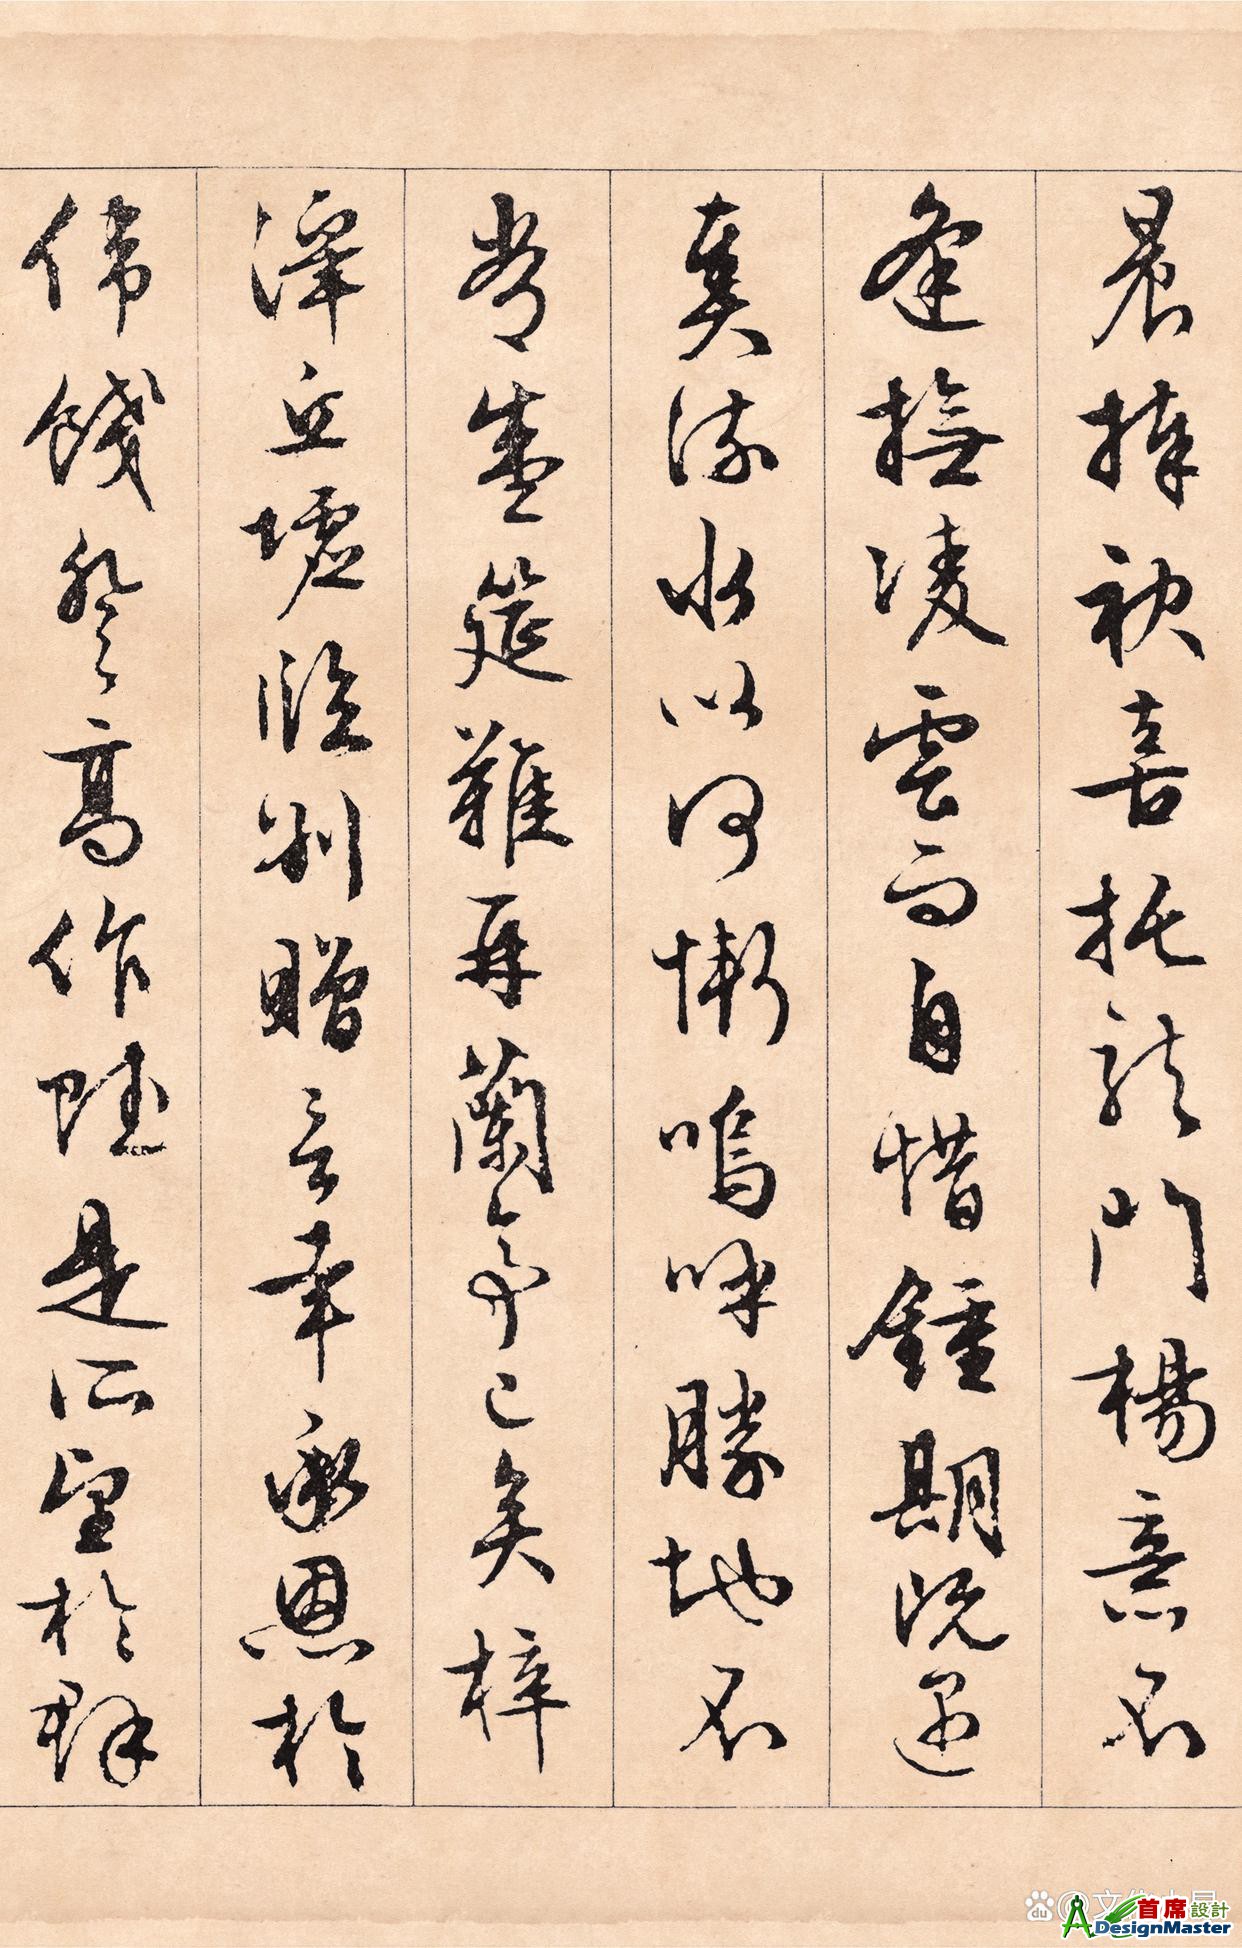 晨捧袂喜托龍門楊意不
逢撫凌雲而自惜鍾期既遇
奏流水以何慚嗚呼勝地不
常盛筵難再蘭亭已矣梓
澤丘墟臨別贈言幸承恩於
偉餞登高作賦是所望於群
首席設計
DesignMaster